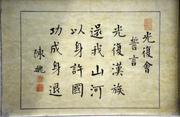 光復會
誓言
光復漢族
還我山河
以身許國
功成身退